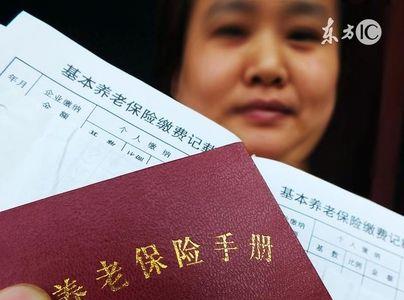 东方IC
基本养老保险缴费记
年月
企业缴纳
金额
个人缴纳
基本养老保险缴费记
个人缴纳
基数
比例
金额
养老保险手册